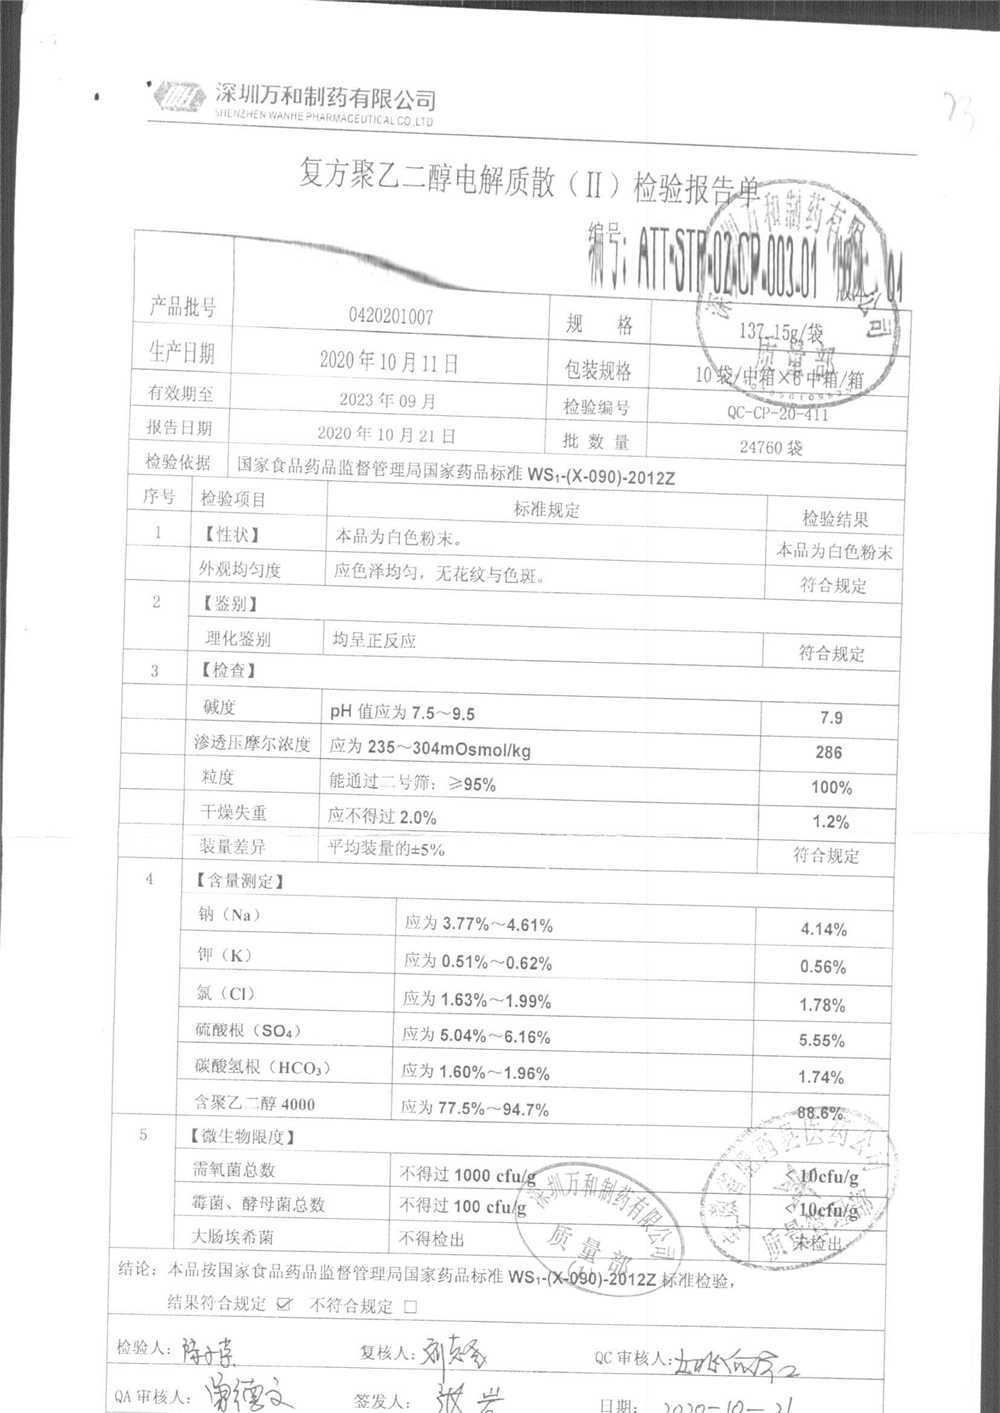 深圳万和制药有限公司
SHENZHEN WANHE PHARMACEUTICAL CO.,LTD
复方聚乙二醇电解质散（II）检验报告单
编号：ATT-STP-02-CP-003.01 01
产品批号 0420201007 规 格 137.15g/袋
生产日期 2020年10月11日 包装规格 10袋/中箱×6中箱/箱
有效期至 2023年09月 检验编号 QC-CP-20-411
报告日期 2020年10月21日 批 数 量 24760袋
检验依据 国家食品药品监督管理局国家药品标准WS₁-(X-090)-2012Z
序号 检验项目 标准规定 检验结果
1 【性状】 本品为白色粉末。 本品为白色粉末
外观均匀度 应色泽均匀，无花纹与色斑。 符合规定
2 【鉴别】
理化鉴别 均呈正反应 符合规定
3 【检查】
碱度 pH值应为7.5～9.5 7.9
渗透压摩尔浓度 应为235～304mOsmol/kg 286
粒度 能通过二号筛：≥95% 100%
干燥失重 应不得过2.0% 1.2%
装量差异 平均装量的±5% 符合规定
4 【含量测定】
钠（Na） 应为3.77%～4.61% 4.14%
钾（K） 应为0.51%～0.62% 0.56%
氯（Cl） 应为1.63%～1.99% 1.78%
硫酸根（SO₄） 应为5.04%～6.16% 5.55%
碳酸氢根（HCO₃） 应为1.60%～1.96% 1.74%
含聚乙二醇4000 应为77.5%～94.7% 88.6%
5 【微生物限度】
需氧菌总数 不得过1000 cfu/g <10cfu/g
霉菌、酵母菌总数 不得过100 cfu/g <10cfu/g
大肠埃希菌 不得检出 未检出
深圳万和制药有限公司
质量部
结论：本品按国家食品药品监督管理局国家药品标准WS₁-(X-090)-2012Z标准检验，
结果符合规定 ☑ 不符合规定 □
检验人： 复核人： QC审核人：
QA审核人： 签发人： 日期：2020-10-21